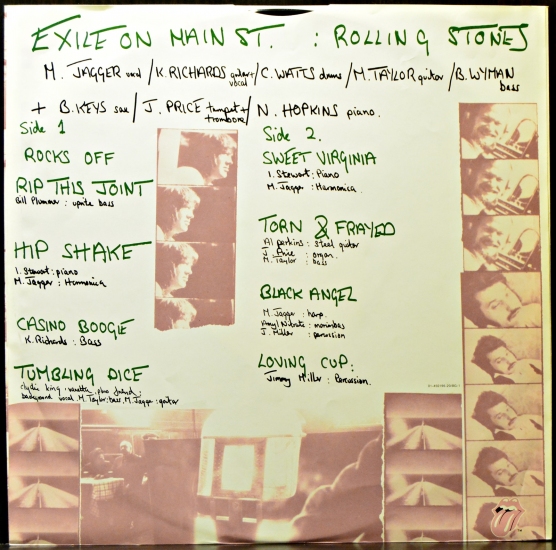 EXILE ON MAIN ST. : ROLLING STONES
M. JAGGER vocal / K. RICHARDS guitar + vocal / C. WATTS drums / M. TAYLOR guitar / B. WYMAN bass
+ B. KEYS sax / J. PRICE trumpet + trombone / N. HOPKINS piano.
Side 1
ROCKS OFF
RIP THIS JOINT
Bill Plummer : uprite bass
HIP SHAKE
I. Stewart : piano
M. Jagger : Harmonica
CASINO BOOGIE
K. Richards : Bass
TUMBLING DICE
clydie king, vanetta, plus friend :
background vocal. M. Taylor : bass, M. Jagger : guitar
Side 2.
SWEET VIRGINIA
I. Stewart : Piano
M. Jagger : Harmonica
TORN & FRAYED
Al perkins : steel guitar
J. Price : organ
M. Taylor : bass
BLACK ANGEL
M. Jagger : harp.
Amyl Nitrate : marimbas
J. Miller : percussion
LOVING CUP :
Jimmy Miller : Percussion.